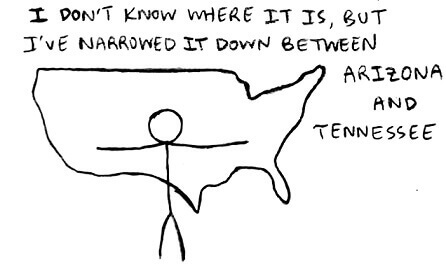 I DON'T KNOW WHERE IT IS, BUT
I'VE NARROWED IT DOWN BETWEEN
ARIZONA
AND
TENNESSEE